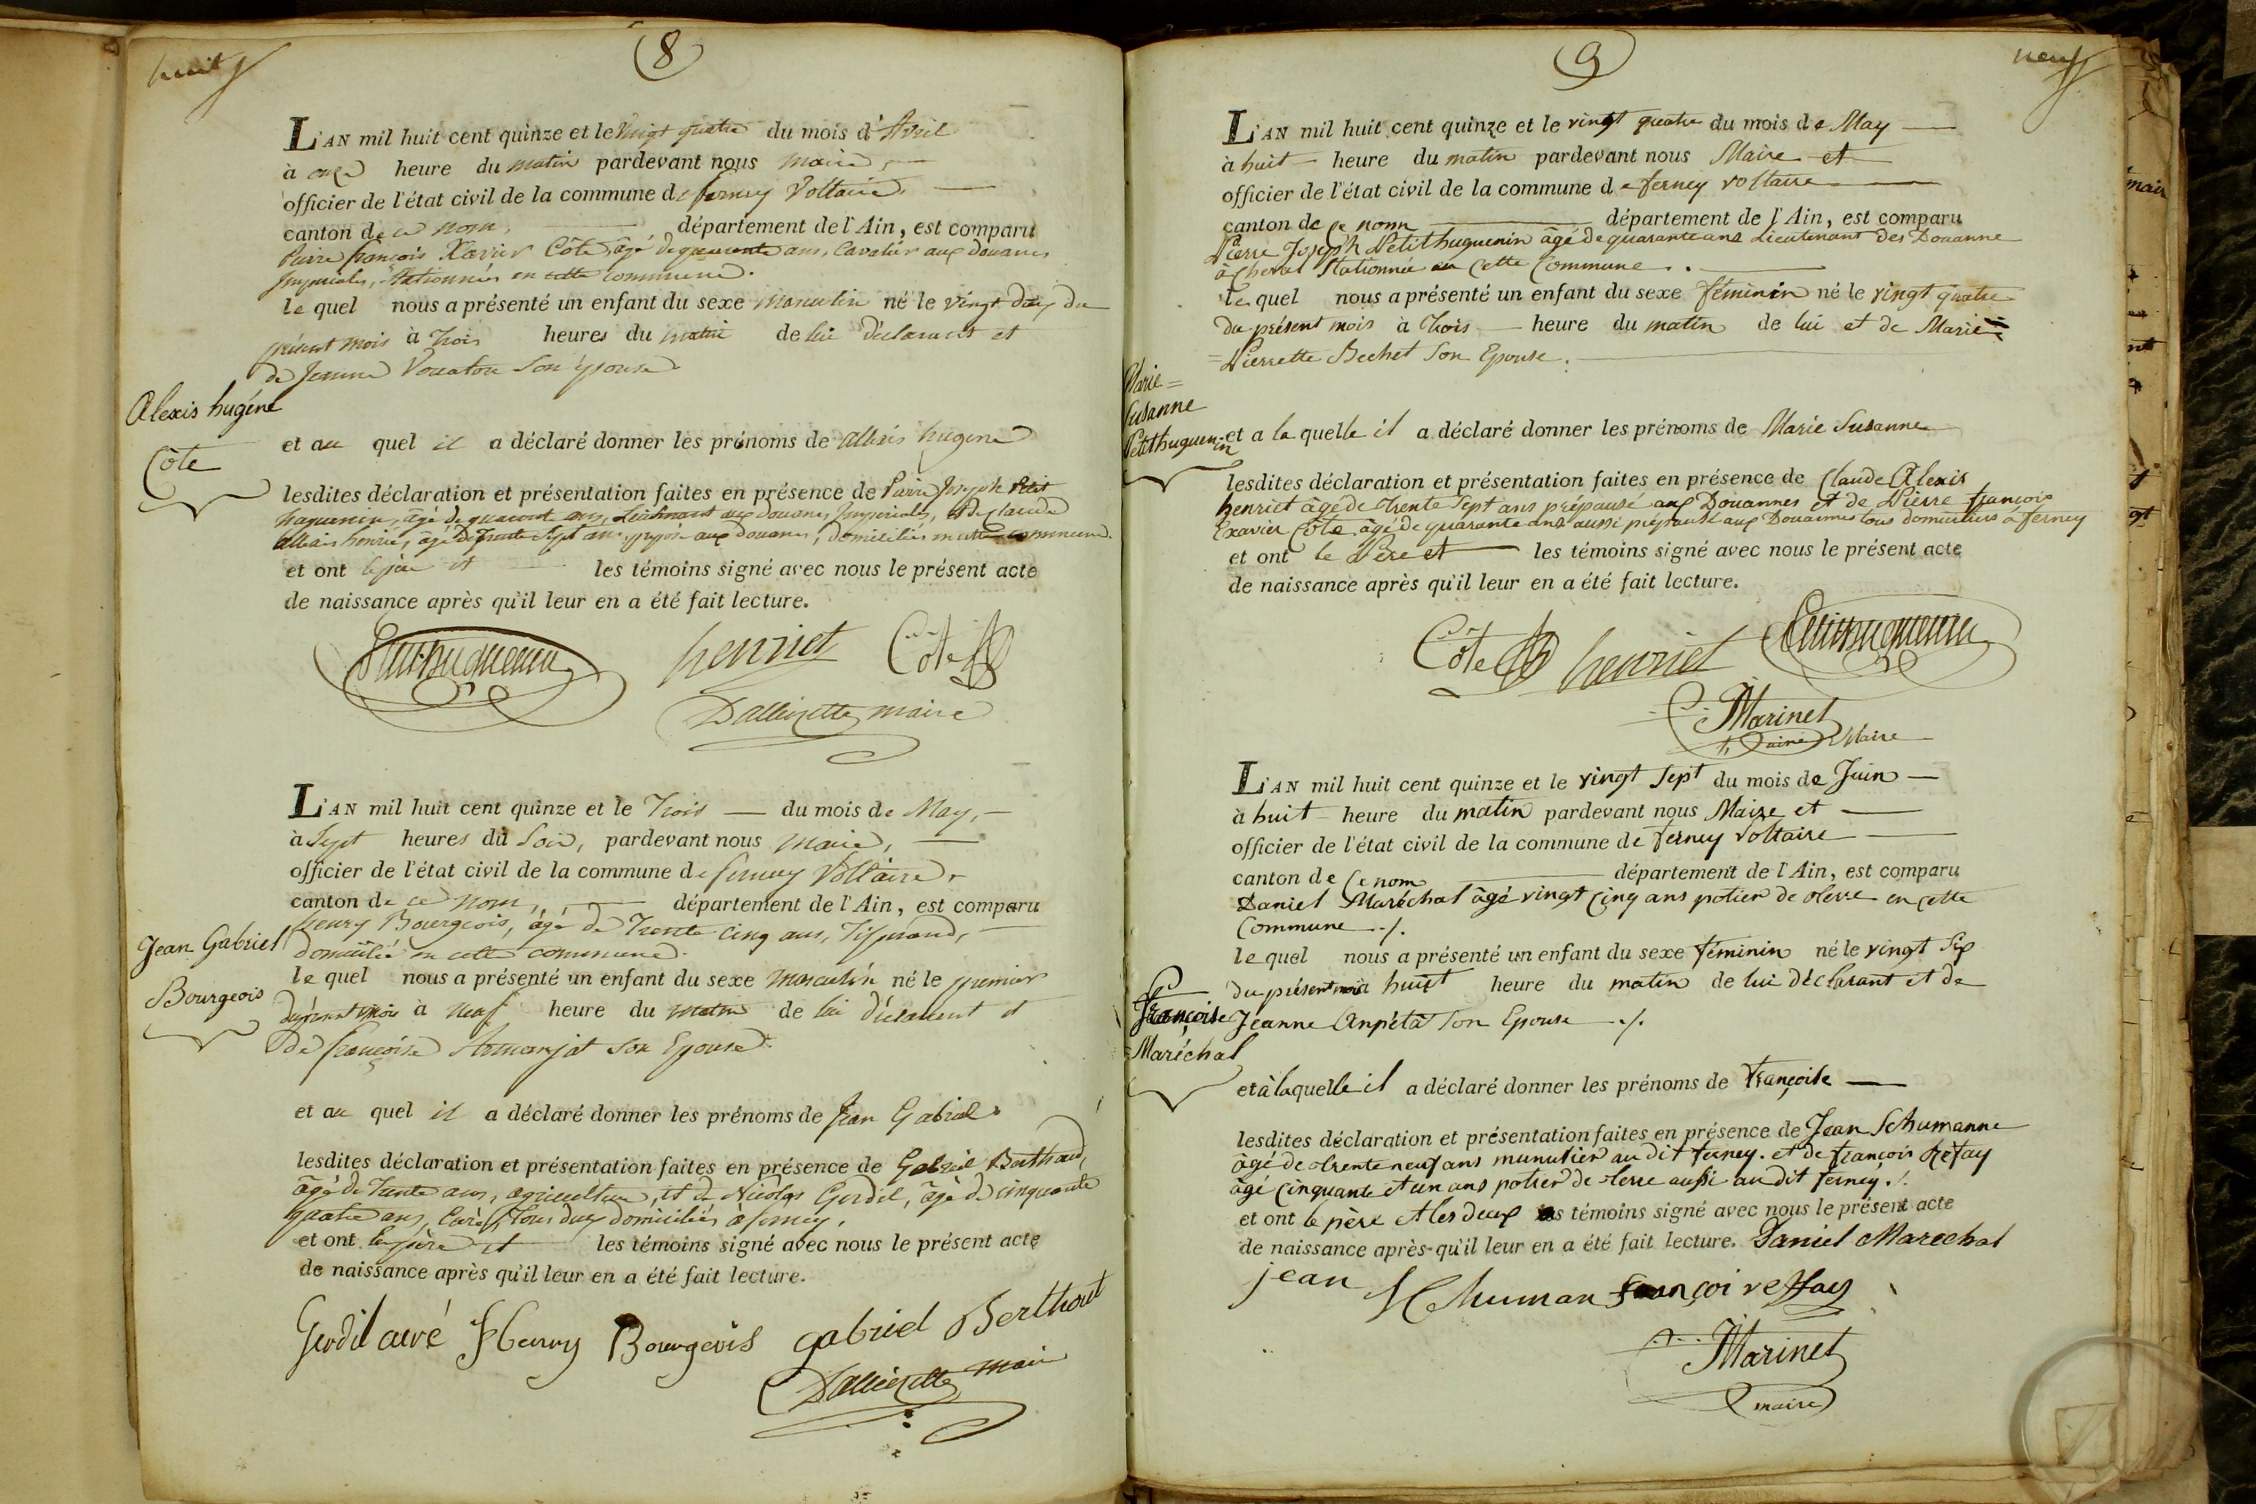 huit
8
L'AN mil huit cent quinze et le Vingt quatre du mois d'Avril
à onze heure du matin pardevant nous maire,
officier de l'état civil de la commune de ferney Voltaire,
canton de ce nom, département de l'Ain, est comparu
Pierre françois Xavier Côte, âgé de quarante ans, Cavalier aux douanes
Impériales, stationnés en cette commune.
le quel nous a présenté un enfant du sexe masculin né le vingt deux du
présent mois à trois heures du matin de lui déclarant et
de Jeanne son épouse
Alexis hugéne
Côte
et au quel il a déclaré donner les prénoms de allexis hugene
lesdites déclaration et présentation faites en présence de Pierre Joseph Petit
huguenin, âgé de quarante ans, Lieutenant aux douanes Imperiales, et de claude
allexis henriet, âgé de trente sept ans, préposé aux douanes, domiciliés en cette commune.
et ont le père et les témoins signé avec nous le présent acte
de naissance après qu'il leur en a été fait lecture.
Petithuguenin henriet Côte
Dallizette maire
L'AN mil huit cent quinze et le Trois du mois de May,
à Sept heures du Soir, pardevant nous maire,
officier de l'état civil de la commune de ferney Voltaire,
canton de ce nom, département de l'Ain, est comparu
henry Bourgeois, âgé de Trente Cinq ans, Tisserand,
domicilié en cette commune.
Jean Gabriel
Bourgeois
le quel nous a présenté un enfant du sexe masculin né le premier
du présent mois à neuf heure du matin de lui déclarant et
de françoise Armanjat son Epouse
et au quel il a déclaré donner les prénoms de Jean Gabriel
lesdites déclaration et présentation faites en présence de Gabriel Berthoud,
âgé de Trente ans, agriculteur, et de Nicolas Gerdil, âgé de cinquante
quatre ans, Curé, Tous deux domiciliés à ferney.
et ont le père et les témoins signé avec nous le présent acte
de naissance après qu'il leur en a été fait lecture.
Gerdil curé Henry Bourgeois gabriel Berthout
Dallizette maire
neuf
9
L'AN mil huit cent quinze et le vingt quatre du mois de May
à huit heure du matin pardevant nous Maire et
officier de l'état civil de la commune de ferney voltaire
canton de ce nom département de l'Ain, est comparu
Pierre Joseph Petithuguenin âgé de quarante ans Lieutenant des Douanne
à Cheval Stationnée en Cette Commune.
le quel nous a présenté un enfant du sexe féminin né le vingt quatre
du présent mois à trois heure du matin de lui et de Marie =
= Pierrette Bechet Son Epouse.
Marie =
Susanne
Petithuguenin
et a la quelle il a déclaré donner les prénoms de Marie Susanne
lesdites déclaration et présentation faites en présence de Claude Alexis
henriet âgé de trente Sept ans prépausé aux Douannes et de Pierre françois
Exavier Côte âgé de quarante ans aussi prépausé aux Douannes tous domiciliers à ferney
et ont le Père et les témoins signé avec nous le présent acte
de naissance après qu'il leur en a été fait lecture.
Côte henriet Petithuguenin
Marinet
ainé Maire
L'AN mil huit cent quinze et le vingt Sept du mois de Juin
à huit heure du matin pardevant nous Maire et
officier de l'état civil de la commune de ferney Voltaire
canton de Ce nom département de l'Ain, est comparu
Daniel Maréchal âgé vingt Cinq ans potier de terre en cette
Commune ./.
le quel nous a présenté un enfant du sexe féminin né le vingt Six
du présent mois à huit heure du matin de lui déclarant et de
Jeanne Anpéta Son Epouse ./.
Françoise
Maréchal
et à laquelle il a déclaré donner les prénoms de Françoise
lesdites déclaration et présentation faites en présence de Jean Schumanne
âgé de trente neuf ans munusier au dit ferney. et de françois Réfay
âgé Cinquante et un ans potier de terre aussi au dit ferney ./.
et ont le père et les deux témoins signé avec nous le présent acte
de naissance après qu'il leur en a été fait lecture. Daniel Marechal
jean Schuman françoi reffay
Marinet
maire